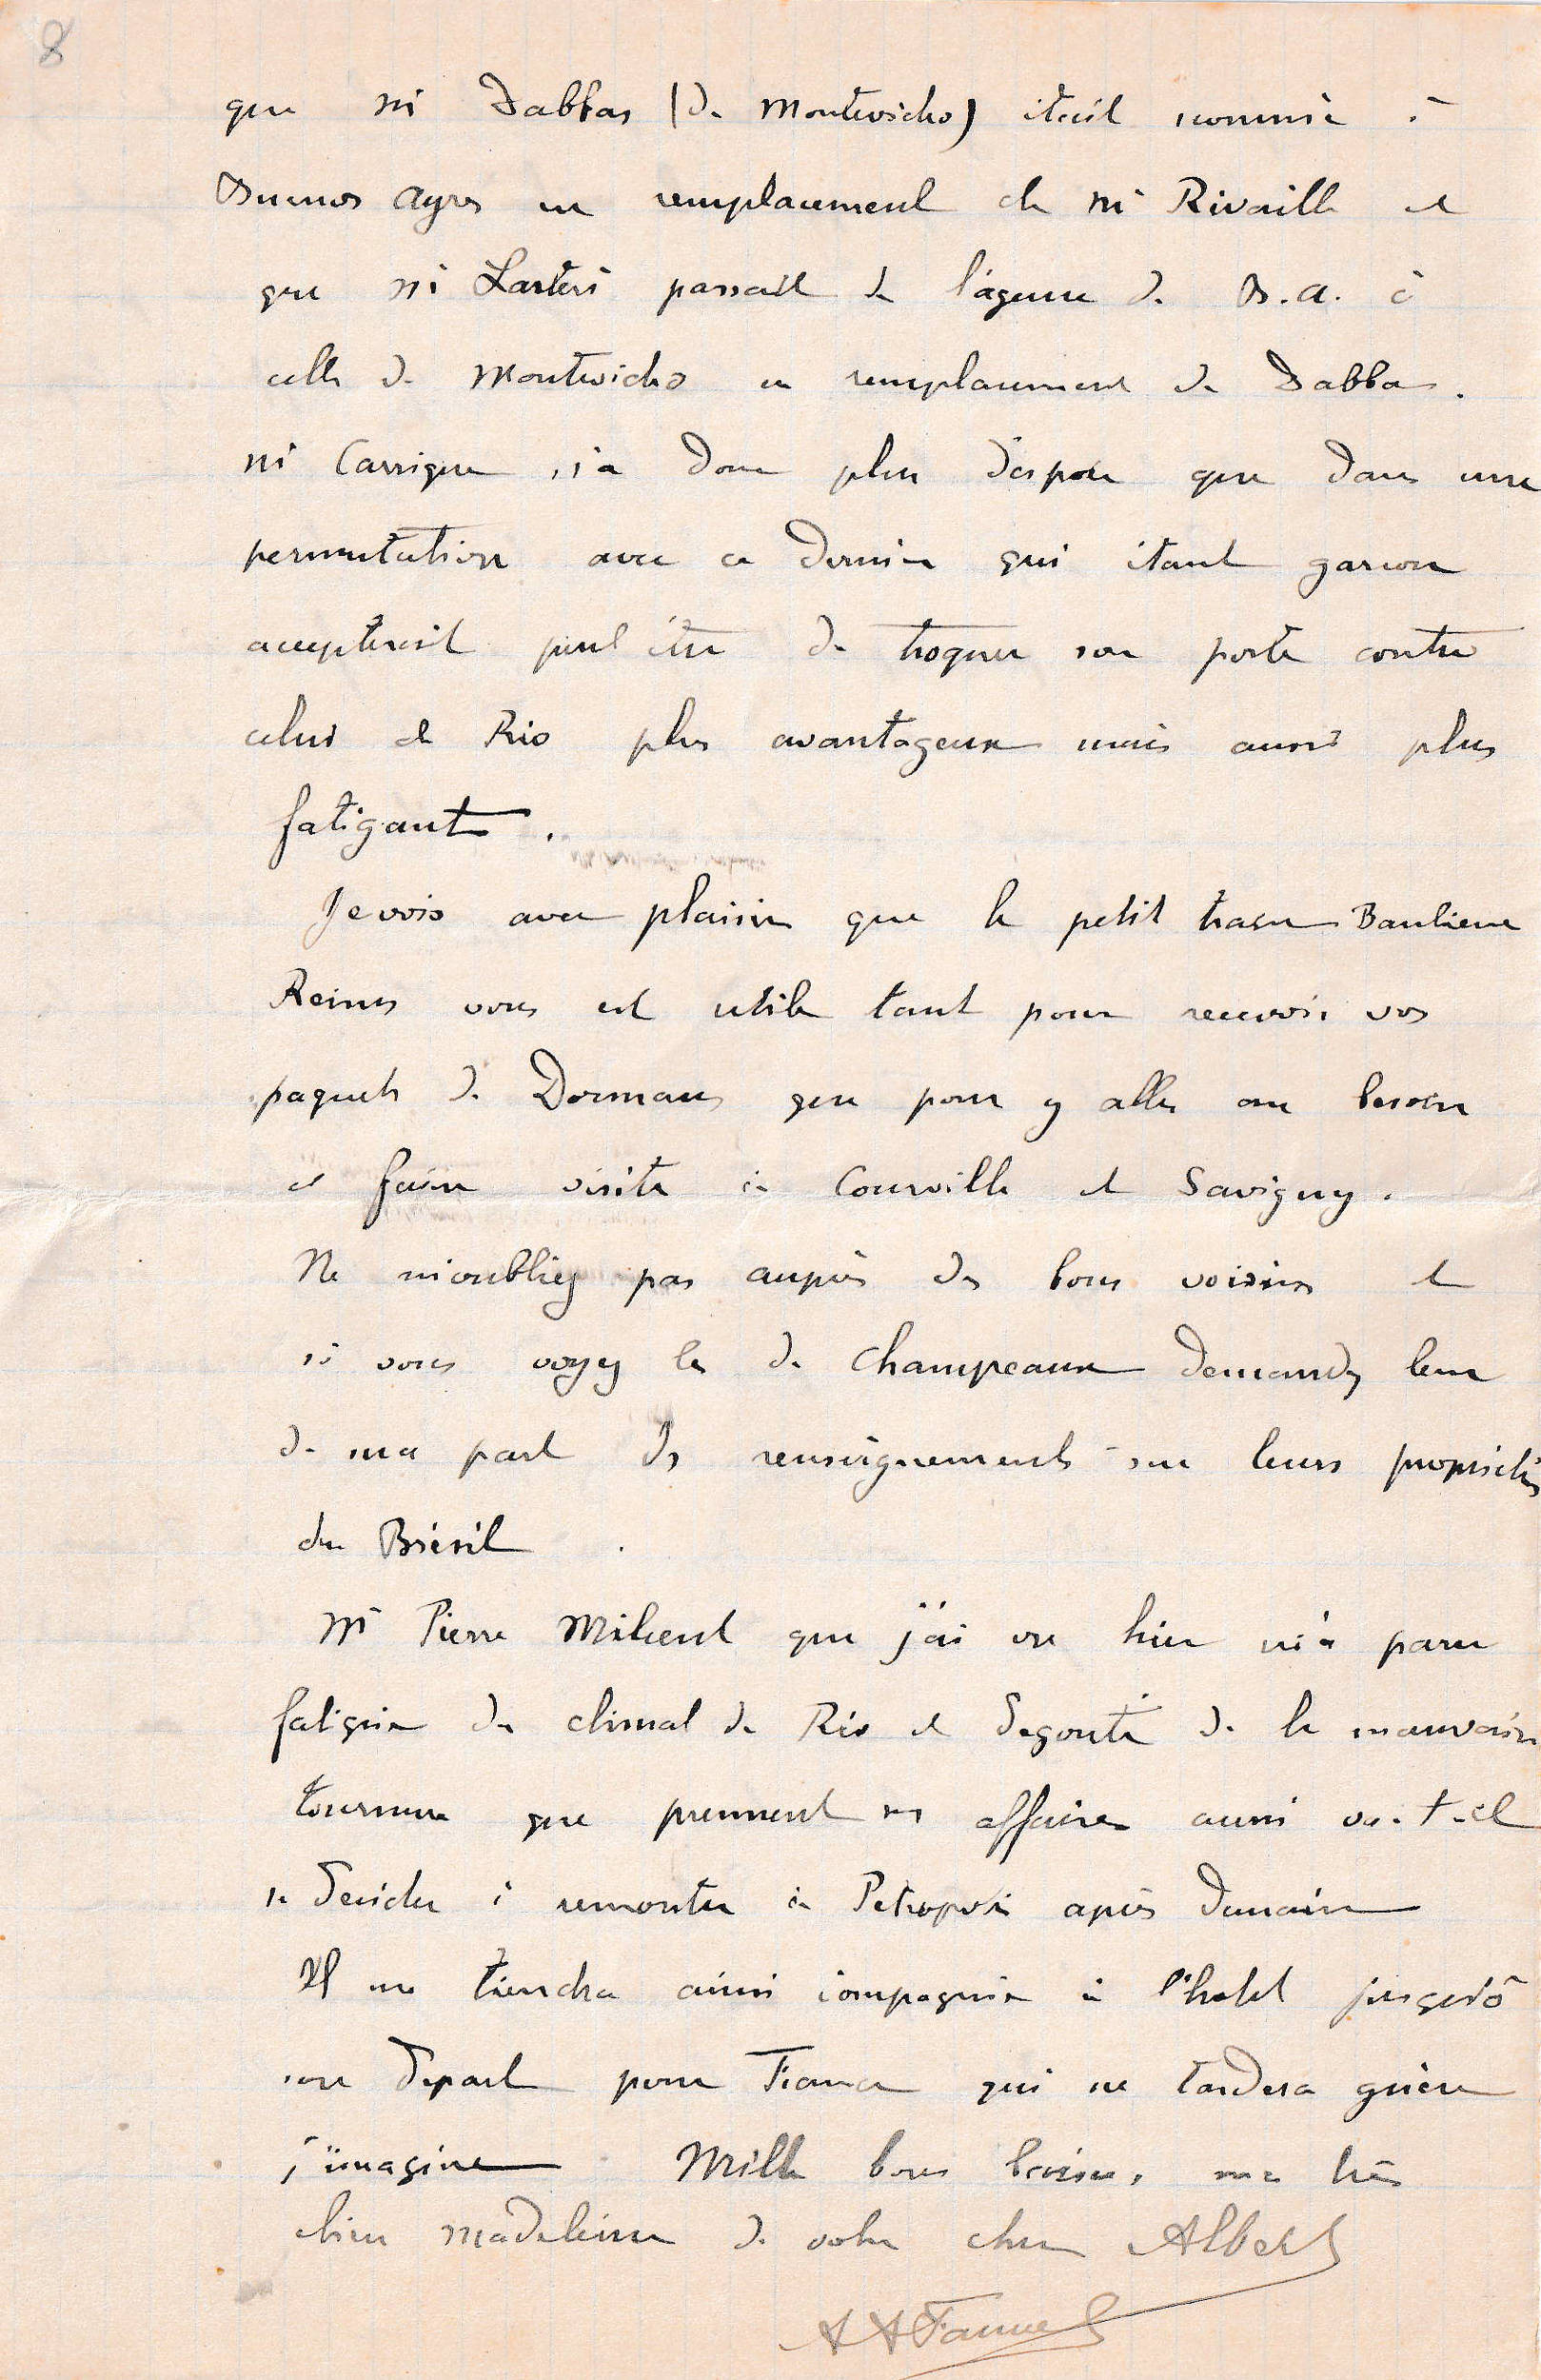 8
que Mr Dabbas (de Montevideo) était nommé à
Buenos Ayres en remplacement de Mr Rivaille et
que Mr Lasteri passait de l'agence de B.A. à
celle de Montevideo en remplacement de Dabbas.
Mr Carrigue n'a donc plus d'espoir que dans une
permutation avec ce dernier qui étant garçon
accepterait peut être de troquer son poste contre
celui de Rio plus avantageux mais aussi plus
fatigant.
Je vois avec plaisir que le petit tram Banlieue
Reims vous est utile tant pour recevoir vos
paquets de Dormans que pour y aller au besoin
et faire visite à Courville et Savigny.
Ne m'oubliez pas auprès des bons voisins et
si vous voyez les de Champeaux demandez leur
de ma part des renseignements sur leurs propriétés
du Brésil.
Mr Pierre que j'ai vu hier m'a paru
fatigué du climat de Rio et dégouté de la mauvaise
tournure que prennent ses affaires aussi va-t-il
se décider à remonter à Petropolis après demain
Il me tiendra ainsi compagnie à l'hotel jusqu'à
son départ pour France qui ne tardera guère
j'imagine Mille bons baisers, ma très
chère Madeleine de votre cher Albert